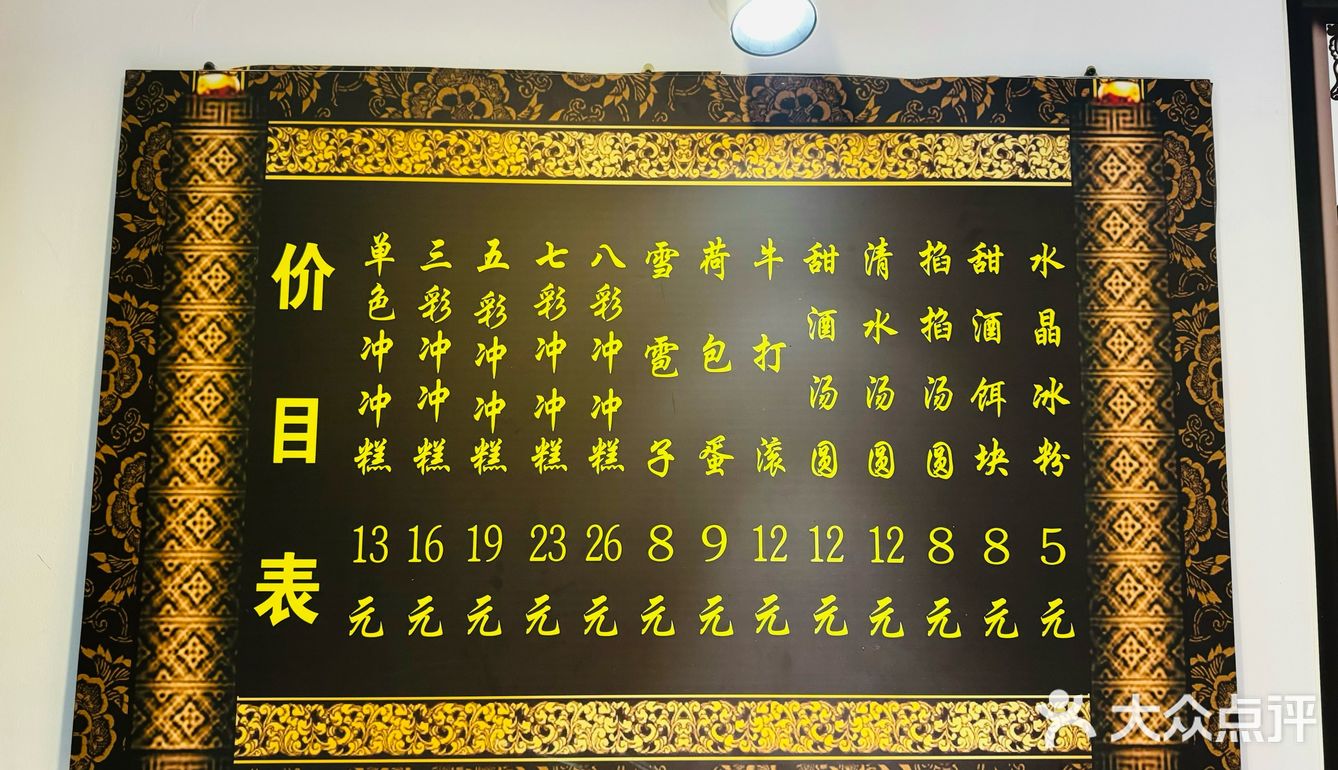 价目表
单色冲冲糕 13元
三彩冲冲糕 16元
五彩冲冲糕 19元
七彩冲冲糕 23元
八彩冲冲糕 26元
雪雹子 8元
荷包蛋 9元
牛打滚 12元
甜酒汤圆 12元
清水汤圆 12元
掐掐汤圆 8元
甜酒饵块 8元
水晶冰粉 5元
大众点评